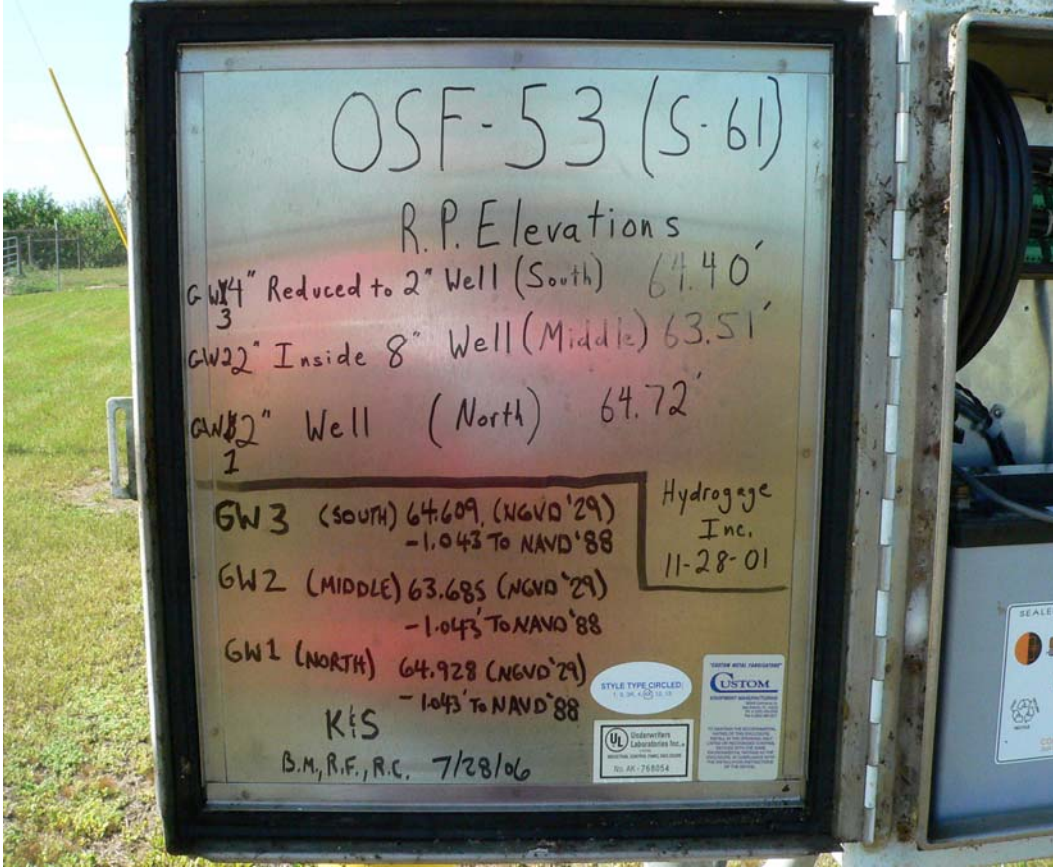 OSF-53 (S-61)
R.P. Elevations
GW 4" Reduced to 2" Well (South) 64.40'
3
GW2 2" Inside 8" Well (Middle) 63.51'
GW 2" Well (North) 64.72'
1
Hydrogage
Inc.
11-28-01
GW3 (SOUTH) 64.609, (NGVD '29)
-1.043 TO NAVD '88
GW2 (MIDDLE) 63.685 (NGVD '29)
-1.043' TO NAVD '88
GW1 (NORTH) 64.928 (NGVD '29)
-1.043' TO NAVD '88
K&S
B.M., R.F., R.C. 7/28/06
STYLE TYPE CIRCLED:
"CUSTOM METAL FABRICATION"
CUSTOM
EQUIPMENT MANUFACTURING
UL
Underwriters
Laboratories Inc.
No. AK-768054
SEALE